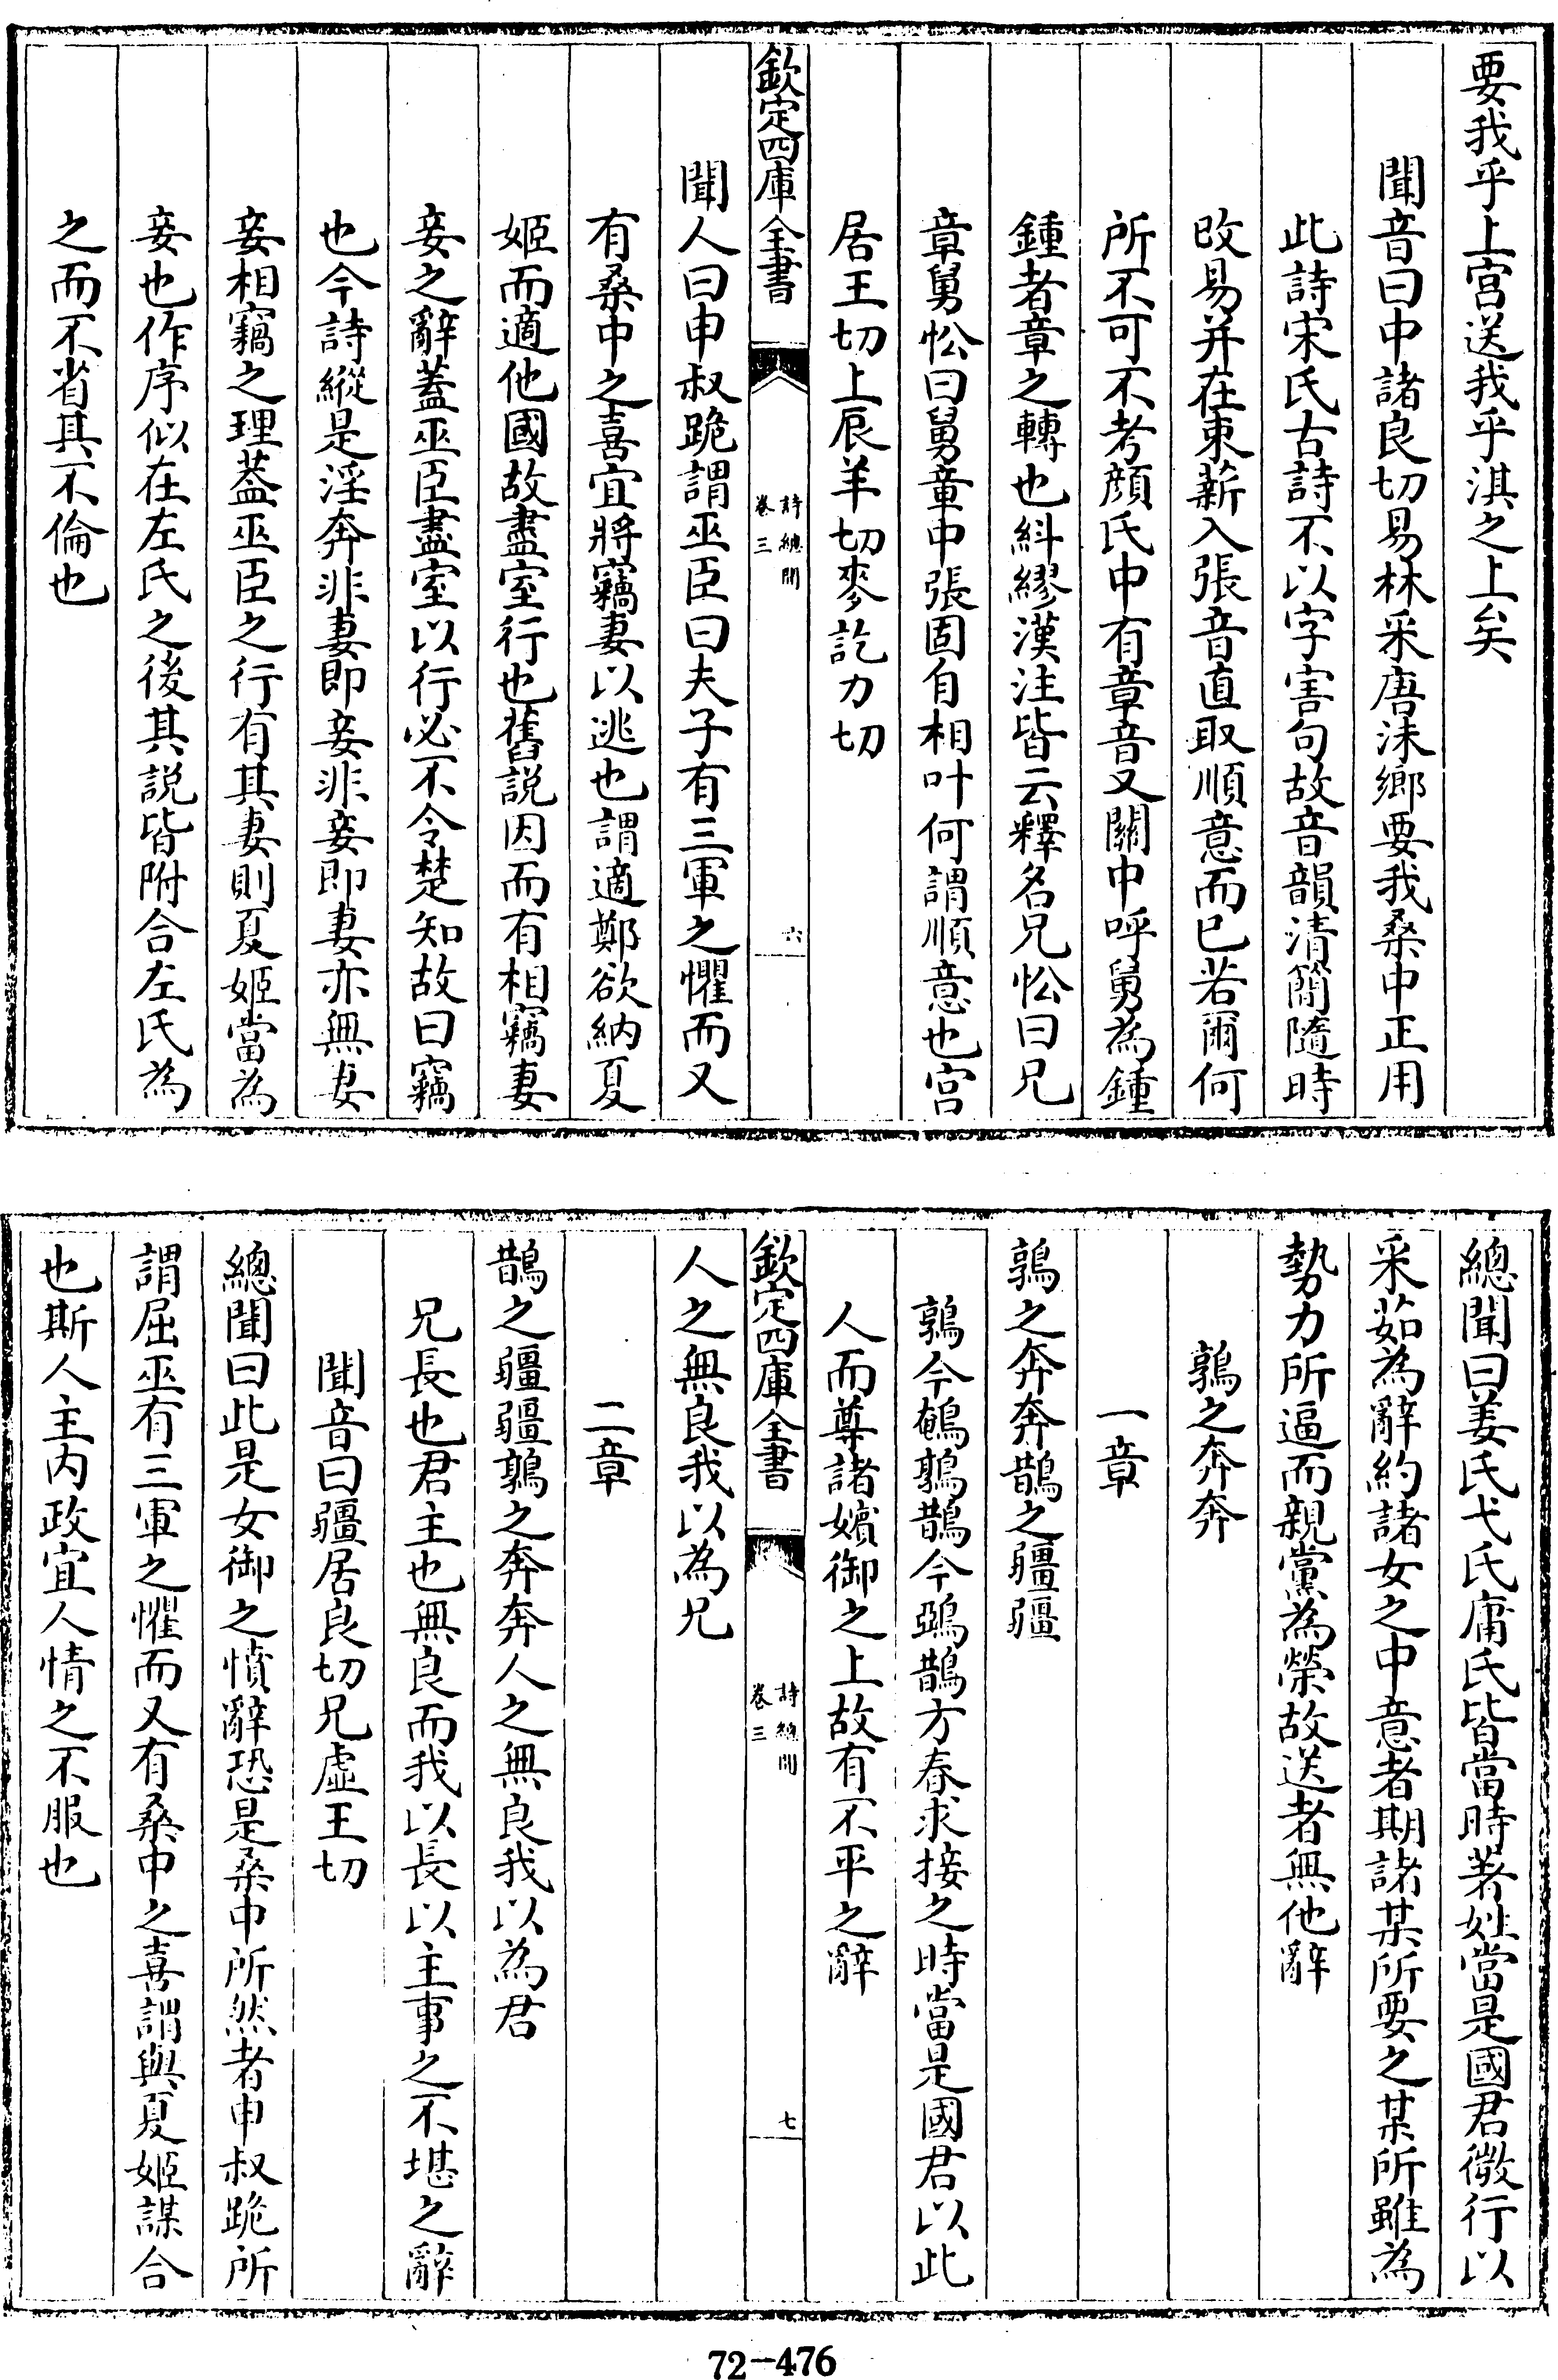 要我乎上宫送我乎淇之上矣
聞音曰中諸良切易林采唐沬鄉要我桑中正用
此詩宋氏古詩不以字害句故音韻清簡隨時
改易并在東薪入張音直取順意而已若爾何
所不可不考顔氏中有章音又關中呼舅為鍾
鍾者章之轉也糾繆漢注皆云釋名兄忪曰兄
章舅忪曰舅章中張固自相叶何謂順意也宫
居王切上辰羊切麥訖力切
欽定四庫全書
詩總聞
卷三
六
聞人曰申叔跪謂巫臣曰夫子有三軍之懼而又
有桑中之喜宜將竊妻以逃也謂適鄭欲納夏
姬而適他國故盡室行也舊説因而有相竊妻
妾之辭蓋巫臣盡室以行必不令楚知故曰竊
也今詩縱是淫奔非妻即妾非妾即妻亦無妻
妾相竊之理葢巫臣之行有其妻則夏姬當為
妾也作序似在左氏之後其説皆附合左氏為
之而不省其不倫也
總聞曰姜氏弋氏庸氏皆當時著姓當是國君微行以
采茹為辭約諸女之中意者期諸某所要之某所雖為
勢力所逼而親黨為榮故送者無他辭
鶉之奔奔
一章
鶉之奔奔鵲之疆疆
鶉今鵪鶉鵲今鵶鵲方春求接之時當是國君以此
人而尊諸嬪御之上故有不平之辭
欽定四庫全書
詩總聞
卷三
七
人之無良我以為兄
二章
鵲之疆疆鶉之奔奔人之無良我以為君
兄長也君主也無良而我以長以主事之不堪之辭
聞音曰疆居良切兄虛王切
總聞曰此是女御之憤辭恐是桑中所然者申叔跪所
謂屈巫有三軍之懼而又有桑中之喜謂與夏姬謀合
也斯人主内政宜人情之不服也
72-476